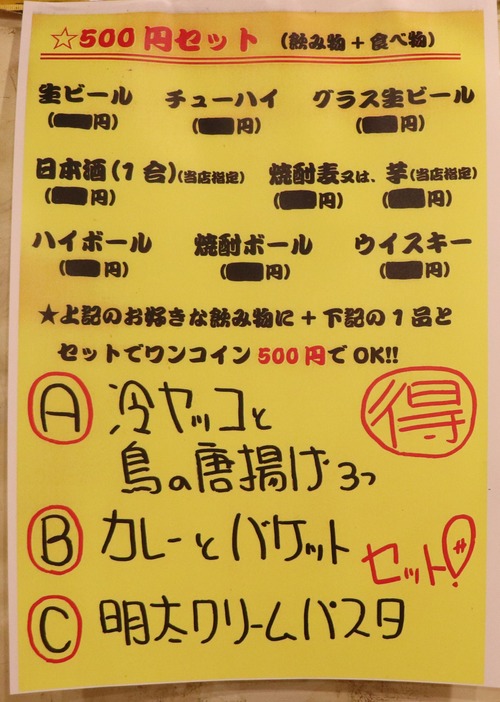 ☆500円セット (飲み物+食べ物)
生ビール チューハイ グラス生ビール
(円) (円) (円)
日本酒(1合)(当店指定) 焼酎麦又は、芋(当店指定)
(円) (円) (円)
ハイボール 焼酎ボール ウイスキー
(円) (円) (円)
★上記のお好きな飲み物に+下記の1品と
セットでワンコイン500円でOK!!
A 冷ヤッコと
鳥の唐揚げ3つ
得
B カレーとバケット
セット!!
C 明太クリームパスタ